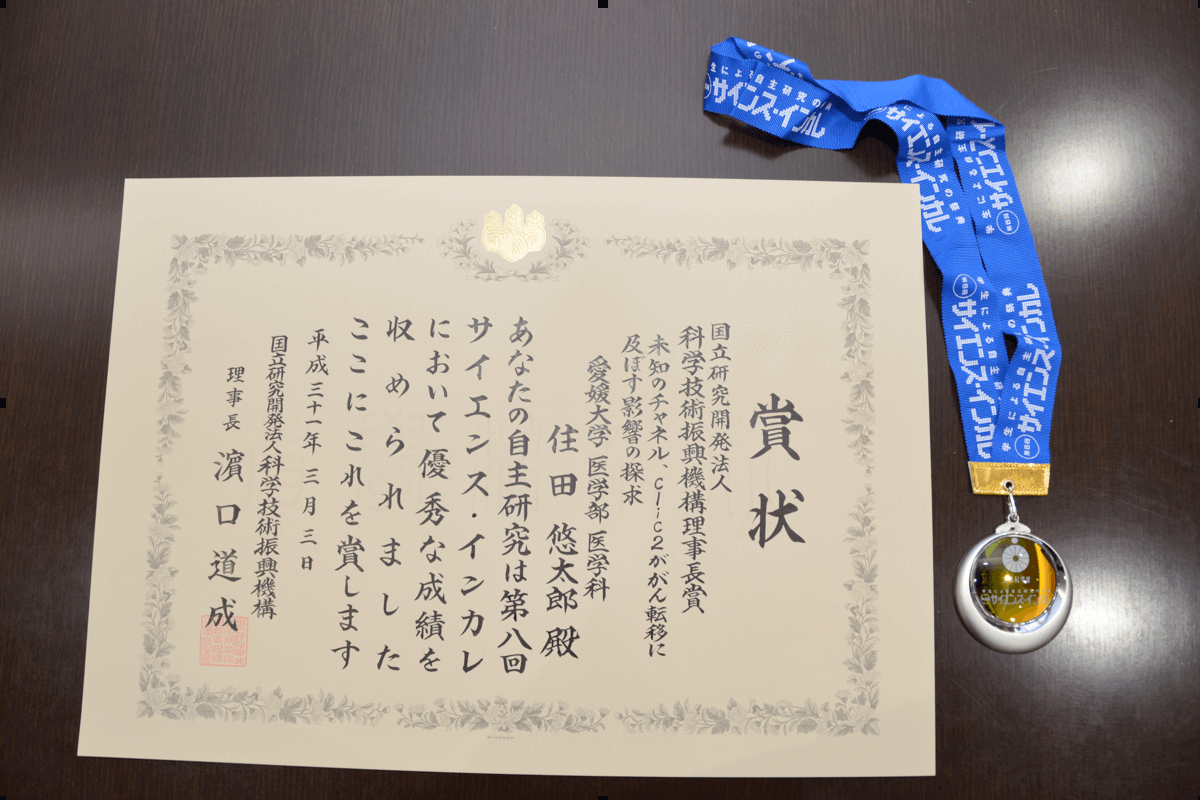 賞状
国立研究開発法人
科学技術振興機構理事長賞
未知のチャネル、Clic2ががん転移に
及ぼす影響の探求
愛媛大学 医学部 医学科
住田 悠太郎 殿
あなたの自主研究は第八回
サイエンス・インカレ
において優秀な成績を
収められました
ここにこれを賞します
平成三十一年 三月 三日
国立研究開発法人科学技術振興機構
理事長 濵口道成
生による自主研究の
サイエンス・インカレ
サイエンス・インカレ
サイエンス・インカレ
学生による自主研究の祭典
サイエンス・インカレ
学生による自主
サイエンス・インカレ
サイエンス・インカレ